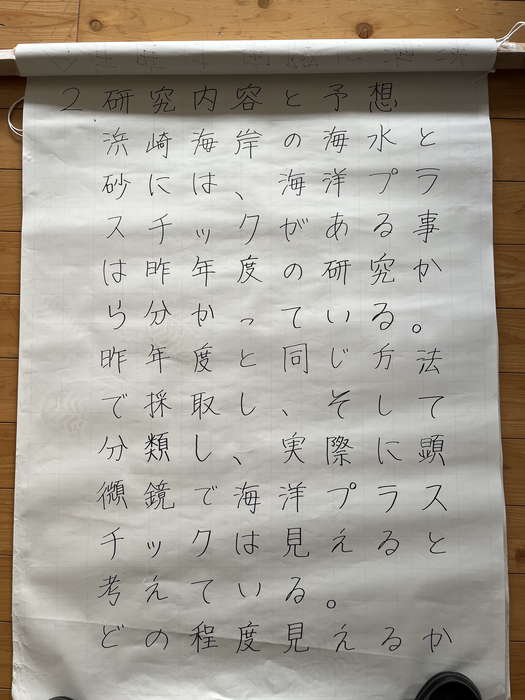 2 研究内容と予想
浜崎海岸の海水と
砂には、海洋プラ
スチックがある事
は昨年度の研究か
ら分かっている。
昨年度と同じ方法
で採取し、そして
分類し、実際に顕
微鏡で海洋プラス
チックは見えると
考えている。
どの程度見えるか